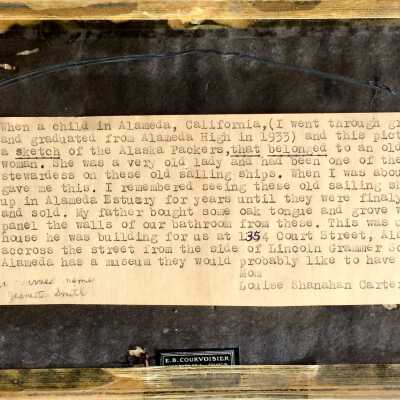 When a child in Alameda, California,(I went through gr
and graduated from Alameda High in 1933) and this pict
a sketch of the Alaska Packers,that belonged to an old
woman. She was a very old lady and had been one of the
stewardess on these old sailing ships. When I was abou
gave me this. I remembered seeing these old sailing sh
up in Alameda Estuary for years until they were finaly
and sold. My father bought some oak tongue and grove w
panel the walls of our bathroom from these. This was o
house he was building for us at 1354 Court Street, Ala
accross the street from the side of Lincoln Grammer Sc
Alameda has a museum they would probably like to have
Mom
Louise Shanahan Carter
name
Smith
E.B. COURVOISIER